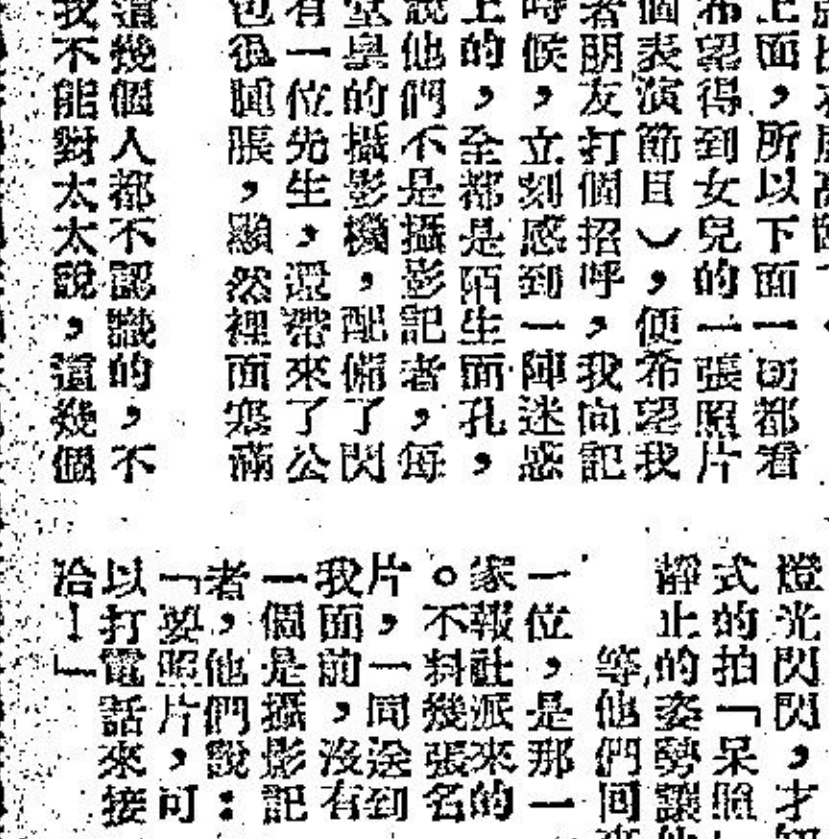 上面,所以下面一切都看
希望得到女兒的一張照片
個表演節目),便希望我
者朋友打個招呼,我向記
時候,立刻感到一陣迷惑
上的,全都是陌生面孔,
說他們不是攝影記者,每
堂皇的攝影機,配備了閃
有一位先生,還帶來了公
也很腫脹,顯然裡面塞滿
這幾個人都不認識的,不
我不能對太太說,這幾個
燈光閃閃,才
式的拍「呆照
靜止的姿勢讓
等他們回
一位,是那一
家報社派來的
。不料幾張名
片,一同送到
我面前,沒有
一個是攝影記
者,他們說:
「要照片,可
以打電話來接
洽!」